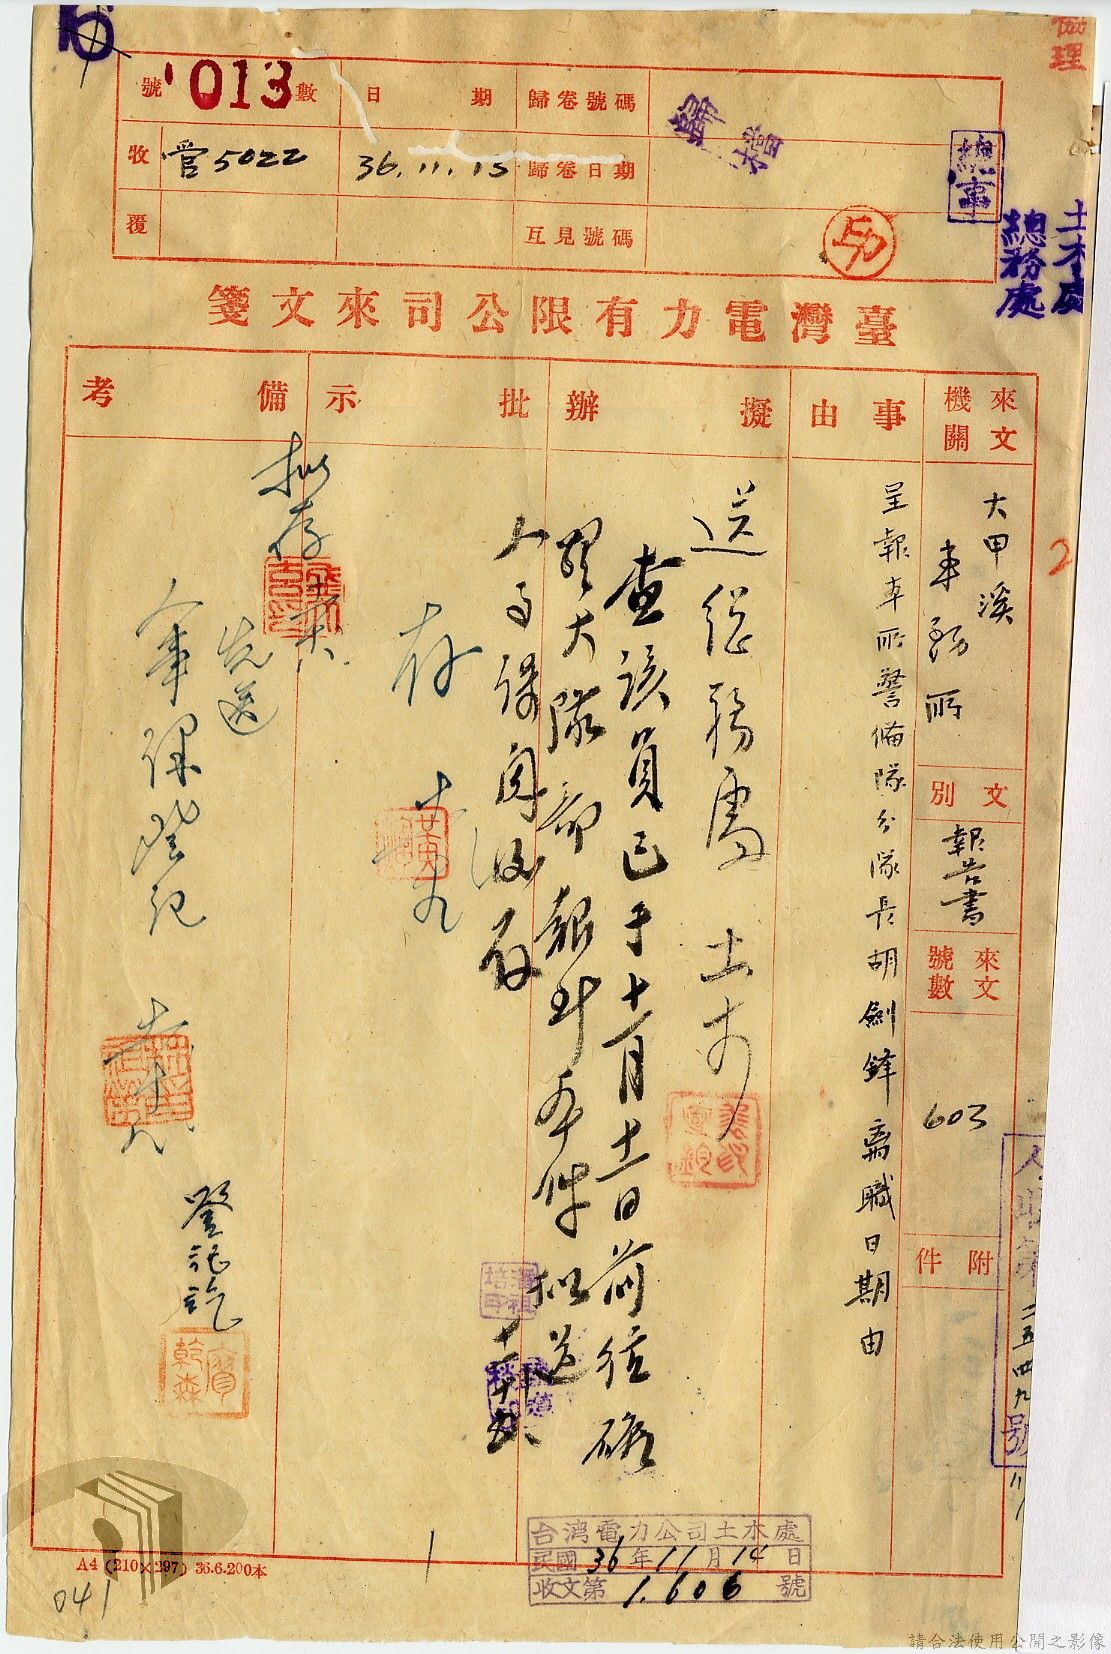 號 013 數
日期
歸卷號碼
歸檔
收 管5022
36.11.15
歸卷日期
覆
互見號碼
總
土木處
總務處
臺灣電力有限公司來文箋
來文機關
大甲溪
事務所
文別
報告書
來文號數
603
附件
事由
呈報本所警備隊分隊長胡劍鋒離職日期由
擬辦
送總務處 土木
查該員已于十一月十一日前往礁
大隊部報到本件擬送
人事課閱後存
批示
存
備考
擬存
先送
人事課登記
登記訖
台湾電力公司土木處
民國36年11月14日
收文第1.606號
A4 (210×297) 36.6.200本
041
2
請合法使用公開之影像